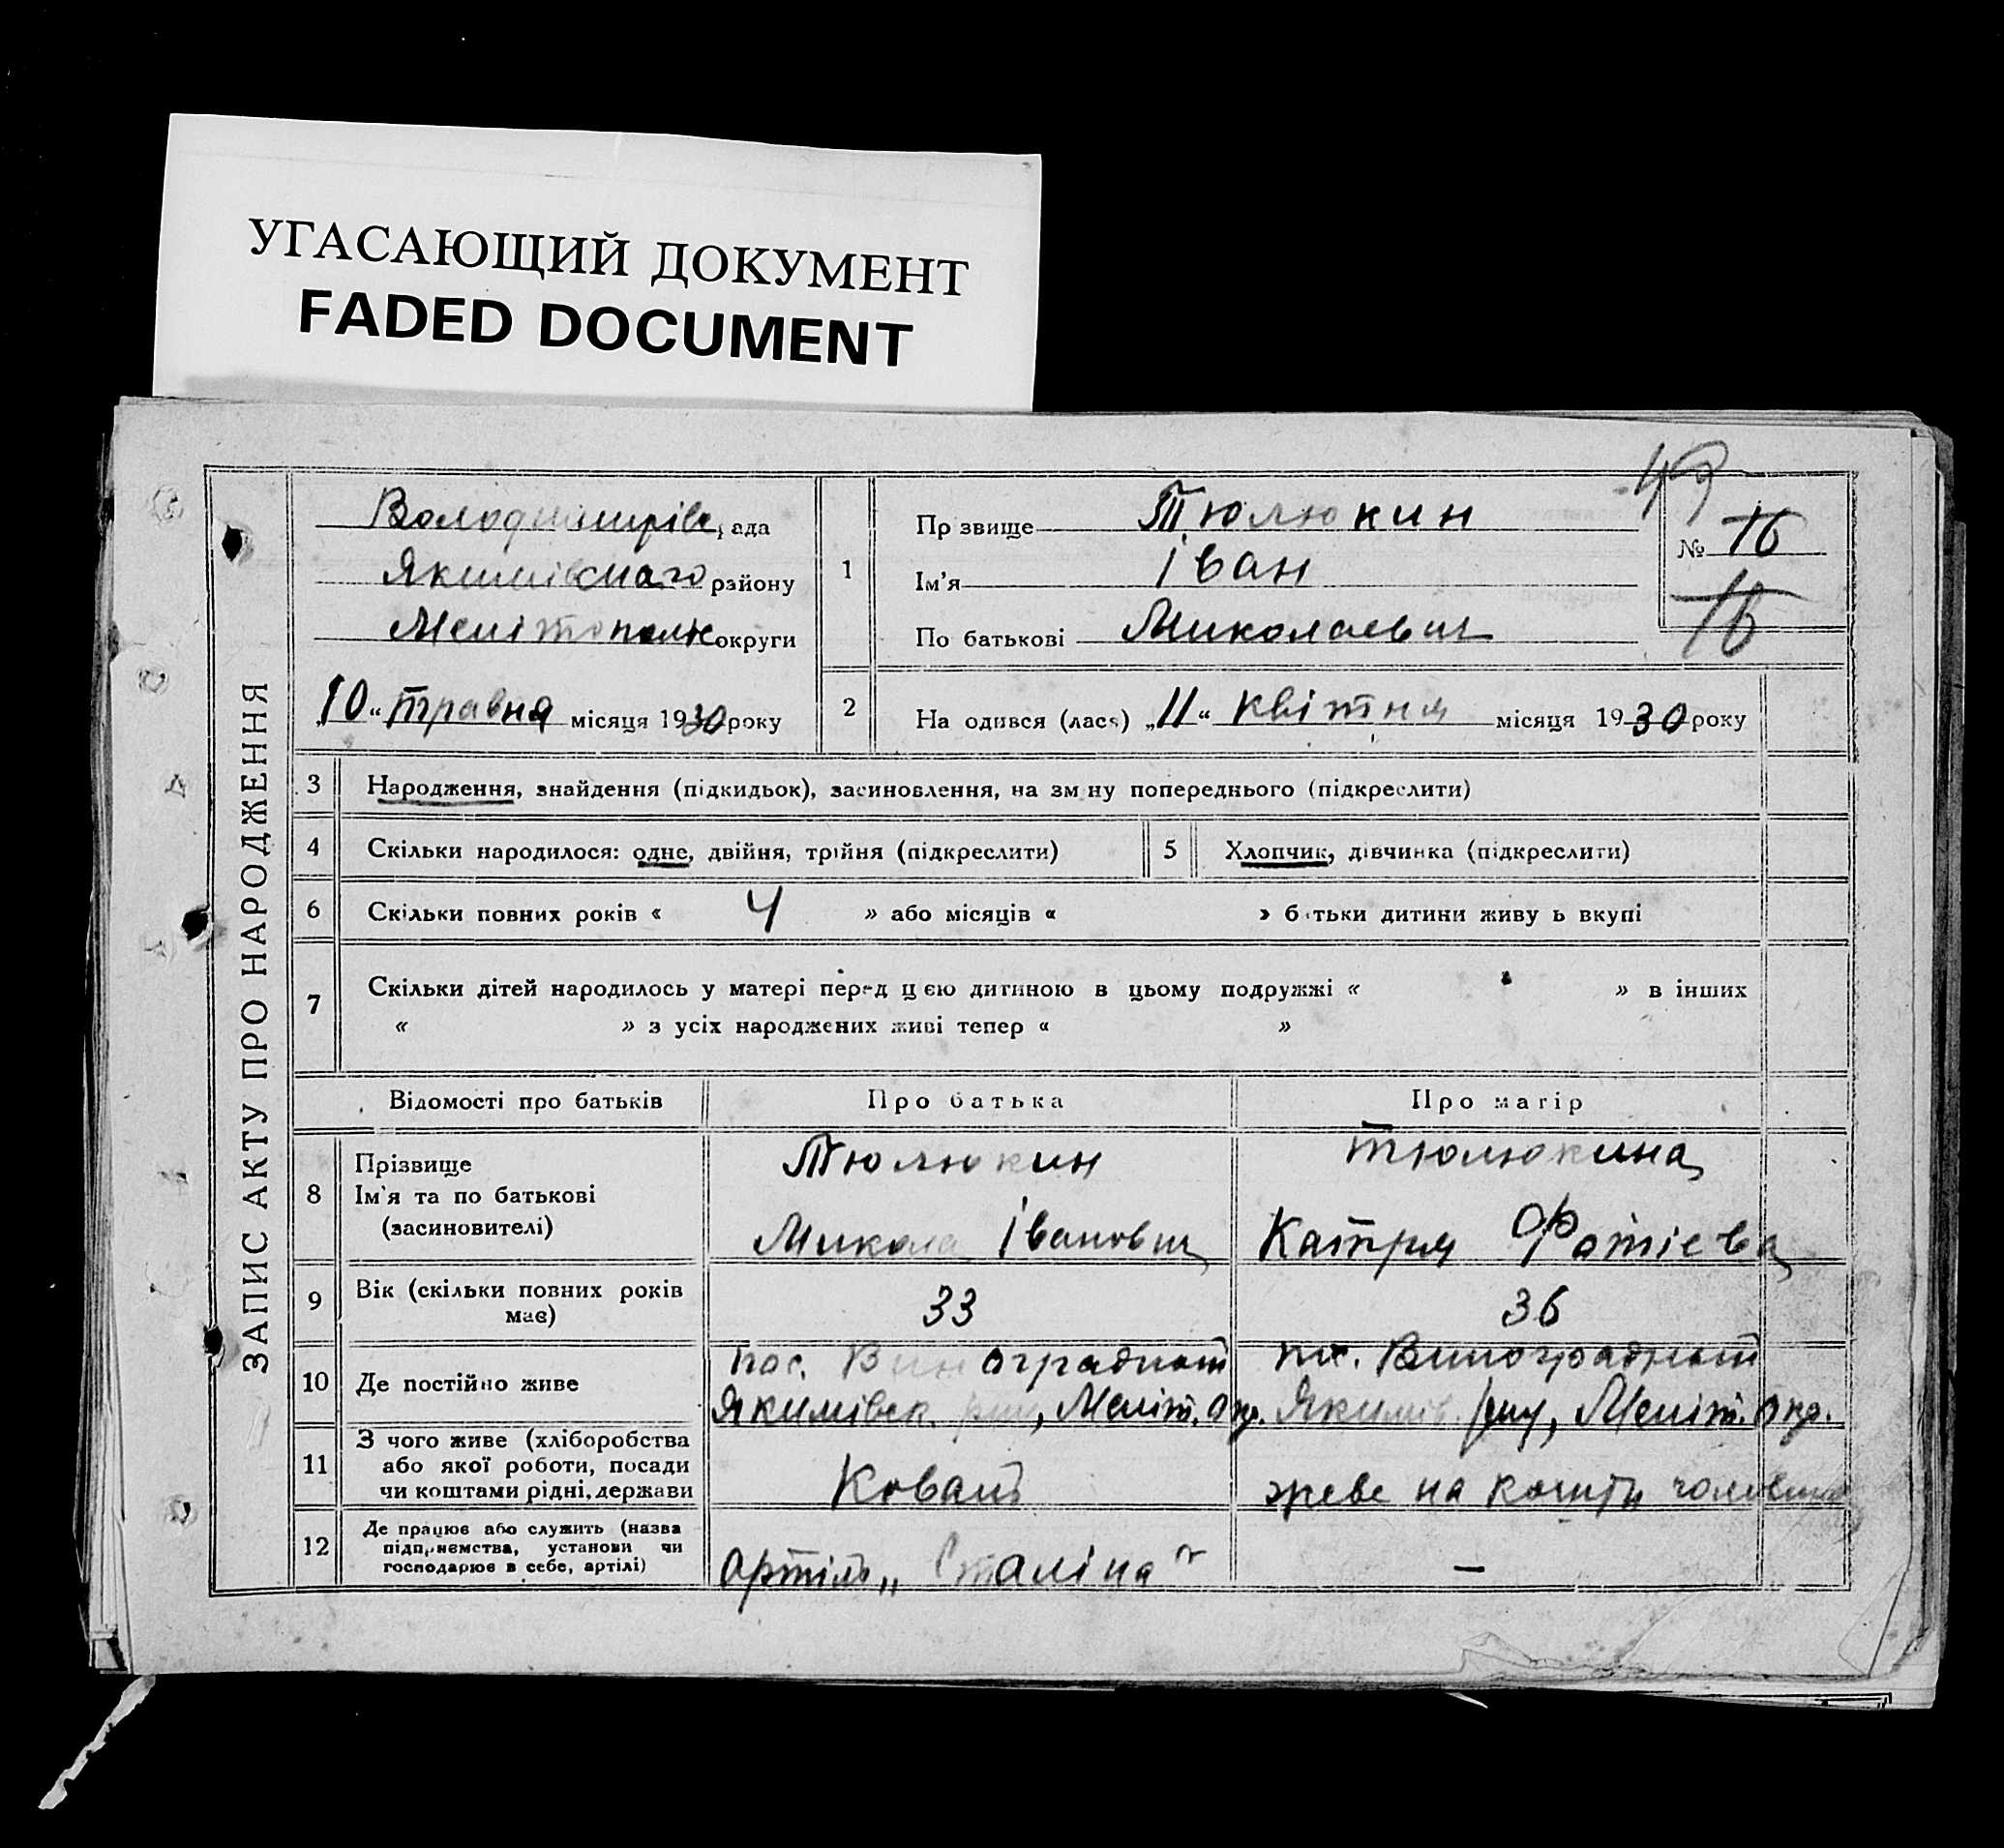 УГАСАЮЩИЙ ДОКУМЕНТ
FADED DOCUMENT
ЗАПИС АКТУ ПРО НАРОДЖЕННЯ
Володимирівс ада
Якимівського району
Мелітопольс округи
10 “ травня місяця 1930 року
1
Пр звище Тюлюкин
Ім’я Іван
По батькові Миколаевич
49
№ 16
16
2
На одився (лась) „11“ квітня місяця 1930 року
3 Народження, знайдення (підкидьок), засиновлення, на зм ну попереднього (підкреслити)
4 Скільки народилося: одне, двійня, трійня (підкреслити) 5 Хлопчик, дівчинка (підкреслити)
6 Скільки повних років « 4 » або місяців « » б тьки дитини живу ь вкупі
7 Скільки дітей народилось у матері перед цією дитиною в цьому подружжі « » в інших
« » з усіх народжених живі тепер « »
Відомості про батьків Про батька Про матір
8 Прізвище
Ім’я та по батькові
(засиновителі)
Тюлюкин
Микола Іванович
Тюлюкина
Катря Фотіева
9 Вік (скільки повних років
має)
33 36
10 Де постійно живе
пос. Виноградний
Якимівск. р-ну, Меліт. окр.
пос. Виноградний
Якимів. р-ну, Меліт. окр.
11 З чого живе (хліборобства
або якої роботи, посади
чи коштами рідні, держави
Коваль
живе на кошти чоловіка
12 Де працює або служить (назва
підприємства, установи чи
господарює в себе, артілі)
Артіль „Сталіна“
—